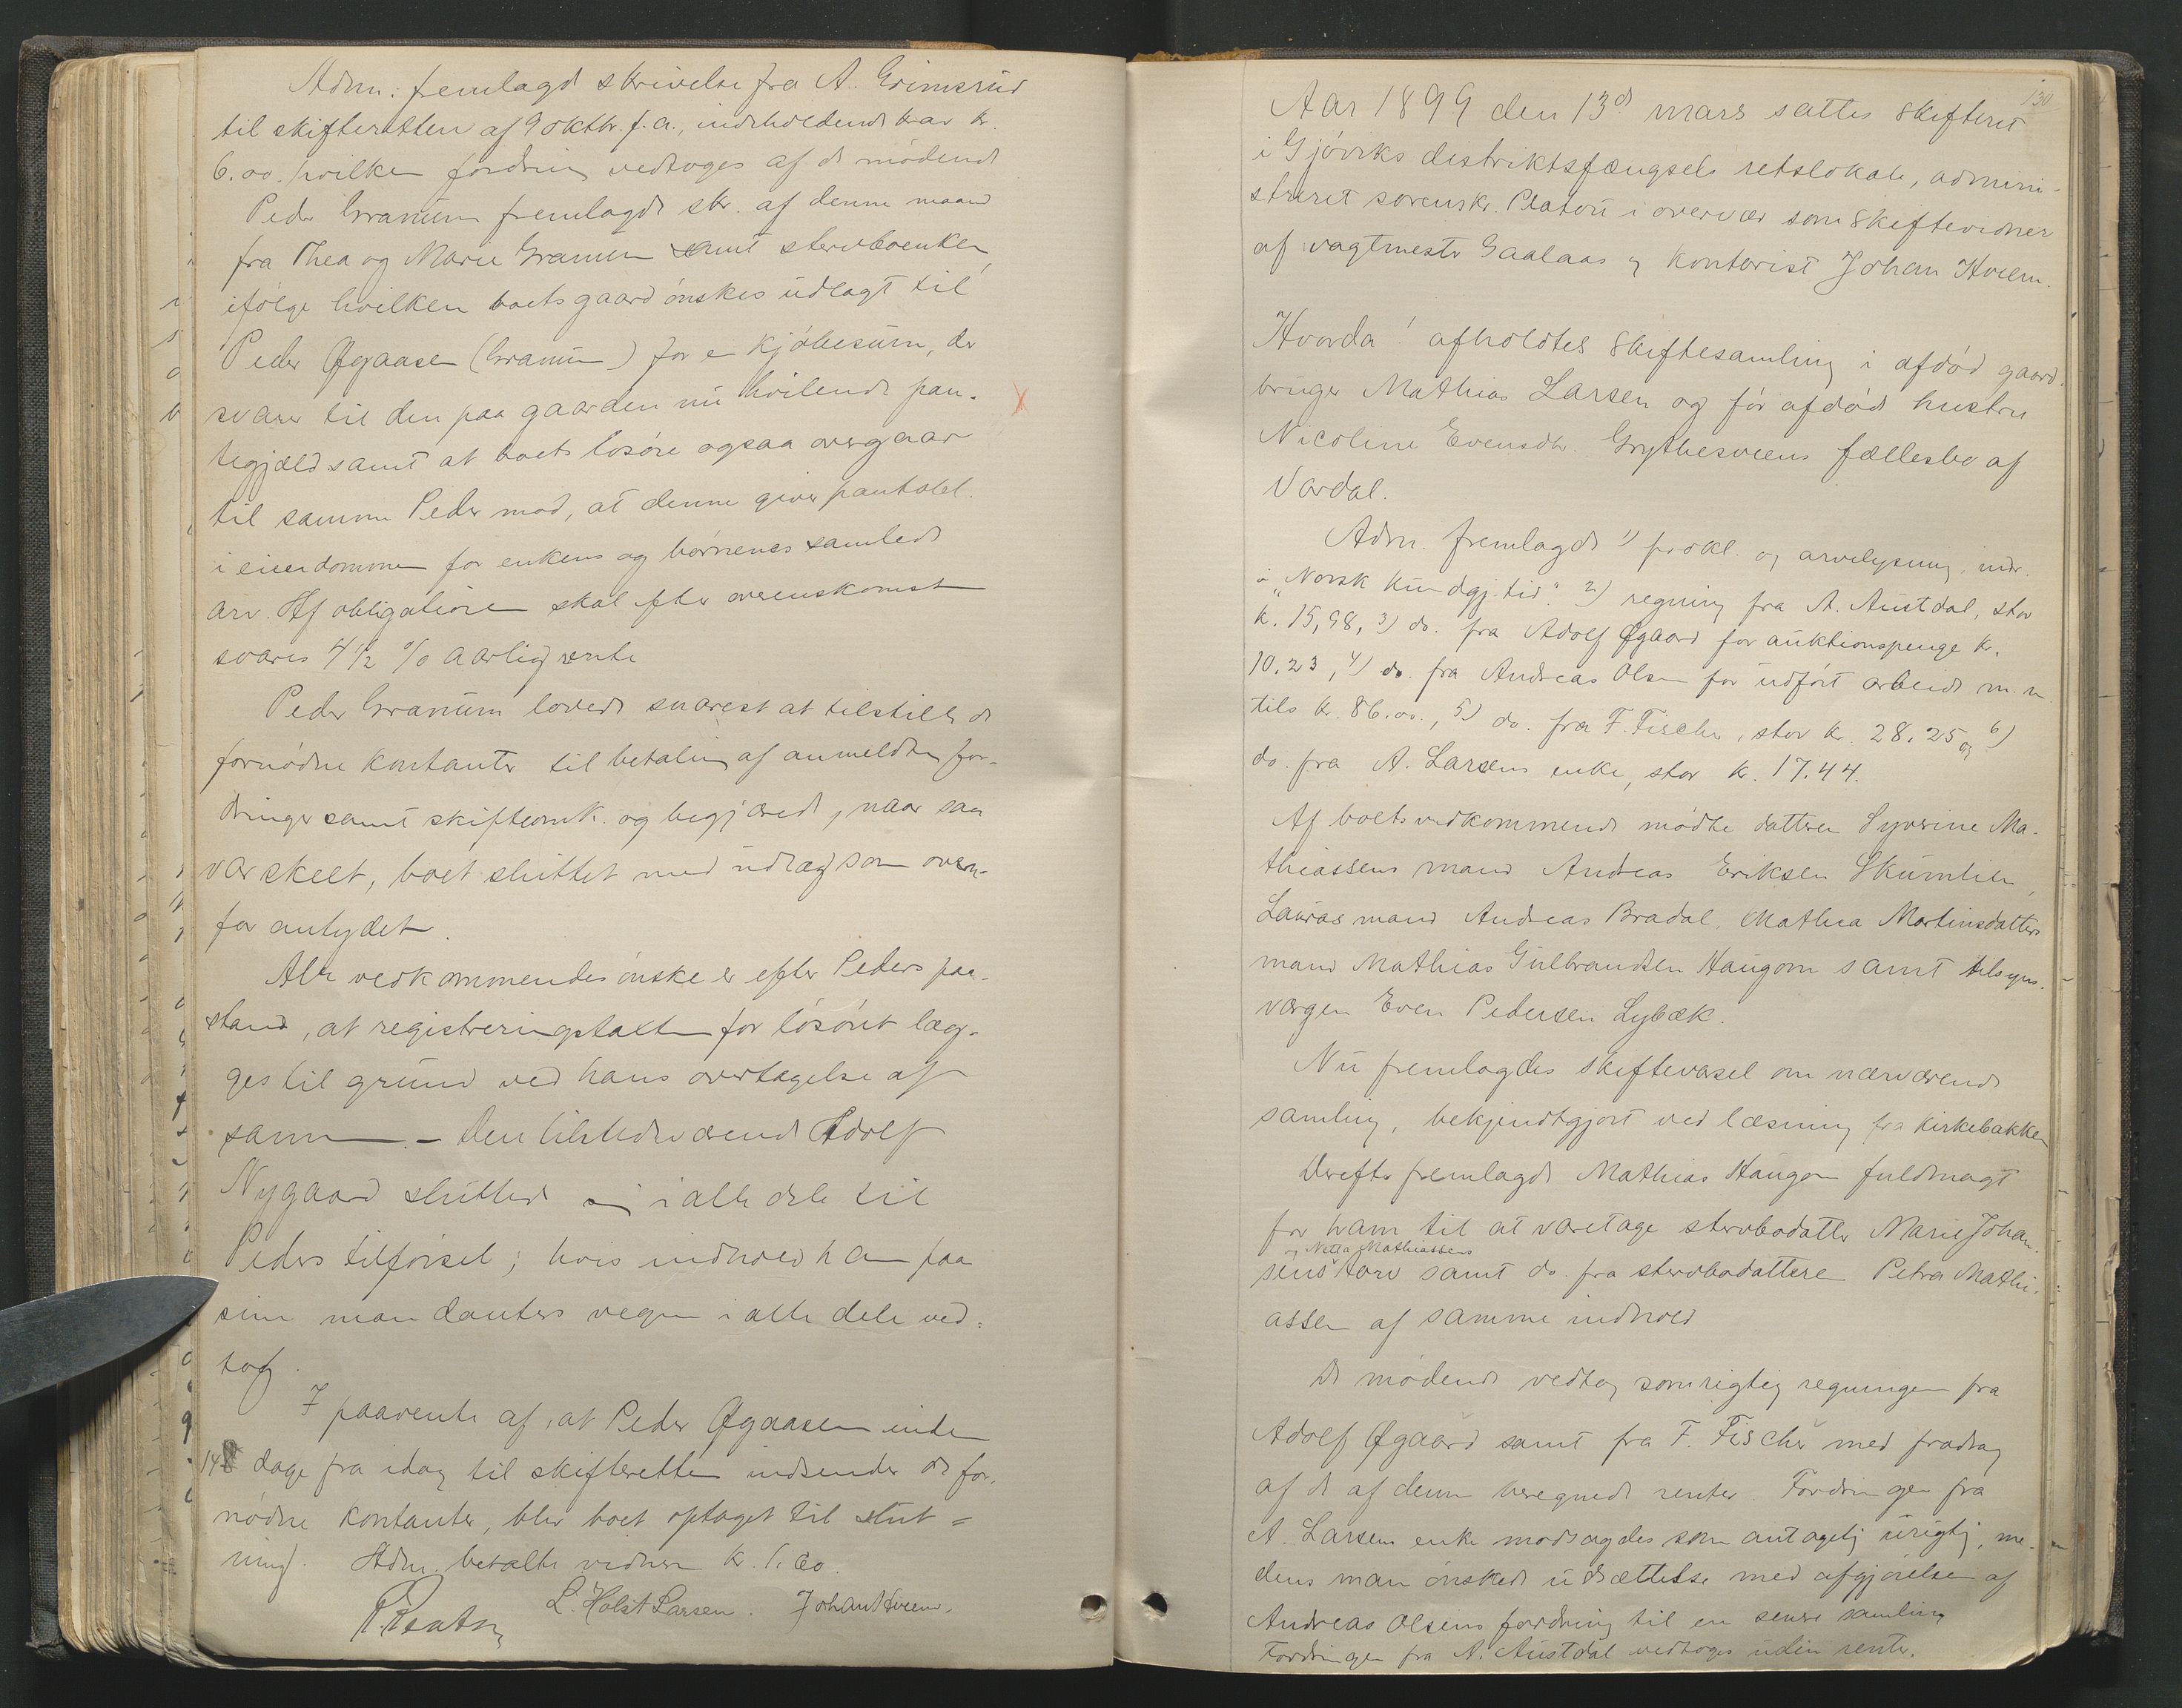 Adm. fremlagd skrivelse fra A. Grimsrud
til skifteretten af 9 oktbr. f.a., indeholdende krav kr.
6.00. hvilken fordring vedtoges af de mødende
Peder Granum fremlagde skr. af denne maaned
fra Thea og Marie Granum samt stervboenken,
ifølge hvilken boets gaard ønskes udlagt til
Peder Øgaasen (Granum) for en kjøbesum, der
svarer til den paa gaarden nu hvilende pan-
tegjæld samt at boets løsøre ogsaa overgaar
til samme Peder mod, at denne giver pantobl.
i eiendommen for enkens og børnenes samlede
arv. Af obligationen skal efter overenskomst
svares 4 1/2 % aarlig rente
Peder Granum lovede snarest at tilstille de
fornødne kontanter til betaling af anmeldte for-
dringer samt skifteomk. og begjærede, naar saa
var skeet, boet sluttet med udlæg som oven-
for antydet.
Alle vedkommendes ønske er efter Peders paa-
stand, at registreringstaxten for løsøret læg-
ges til grund ved hans overtagelse af
samme. – Den tilstedeværende Adolf
Nygaard sluttede sig i alle dele til
Peders tilførsel; hvis indhold han paa
sine mandanters vegne i alle dele ved-
tog.
I paavente af, at Peder Øgaasen inden
14 dage fra idag til skifteretten indsender de for-
nødne kontanter, blev boet optaget til slut-
ning. Adm. betalte vidnerne kr. 1.60.
L. Holst Larsen. Johan Hveem.
130
Aar 1899 den 13de mars sattes skifteret
i Gjøviks distriktsfængsels retslokale, admini-
streret sorenskr. Platou i overvær som skiftevidner
af vagtmester Gaalaas og kontorist Johan Hveem.
Hvorda! afholdtes skiftesamling i afdød gaard-
bruger Mathias Larsen og før afdøde hustru
Nicoline Evensdtr. Grythesveens fællesbo af
Vardal.
Adm. fremlagde 1) prokl. og arvelysning, indr.
i „Norsk kundgj.tid." 2) regning fra A. Austdal, stor
kr. 15,98, 3) do. fra Adolf Øgaard for auktionspenge kr.
10.23, 4) do. fra Andreas Olsen for udført arbeide m.m.
tils kr. 86.00., 5) do. fra F. Fischer, stor kr. 28.25 og 6)
do. fra A. Larsens enke, stor kr. 17.44.
Af boets vedkommende mødte datteren Syverine Ma-
thiassens mand Andreas Eriksen Skumlien,
Lauras mand Andreas Bradal, Mathea Martinsdatters
mand Mathias Gulbrandsen Haugom samt tilsyns-
værgen Even Pedersen Lybæk.
Nu fremlagdes skiftevarsel om nærværende
samling, bekjendtgjort ved læsning fra kirkebakken
Derefter fremlagde Mathias Haugom fuldmagt
for ham til at varetage stervbodatter Marie Johan-
og Netta Mathiassens
sens tarv samt do. fra stervbodatteren Petra Mathi-
assen af samme indhold
De mødende vedtog som rigtig regningen fra
Adolf Øgaard samt fra F. Fischer med fradrag
af de af denne beregnede renter. Fordringen fra
A. Larsens enke modsagdes som antagelig urigtig, me-
dens man ønskede udsættelse med afgjørelsen af
Andreas Olsens fordring til en senere samling
Fordringen fra A. Austdal vedtoges uden renter.